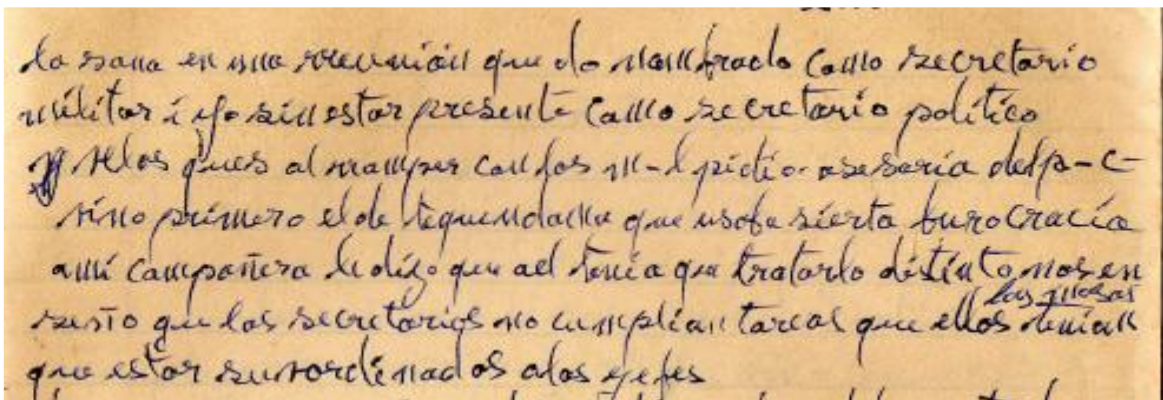 la sona en una rreunión que do nombrado como secretario
militar i yo sin estar presente como secretario político
Velos pues al rromper con los m-l pidio asesoria del p-c
vino primero el de tequendama que usoba sierta burocracia
ami compañera le dijo que ael tenia que tratarlo distinto nos en
seño que los secretarios no cumplian tareas que ellos tenian
las mosas
que estar suvordinados alos gefes